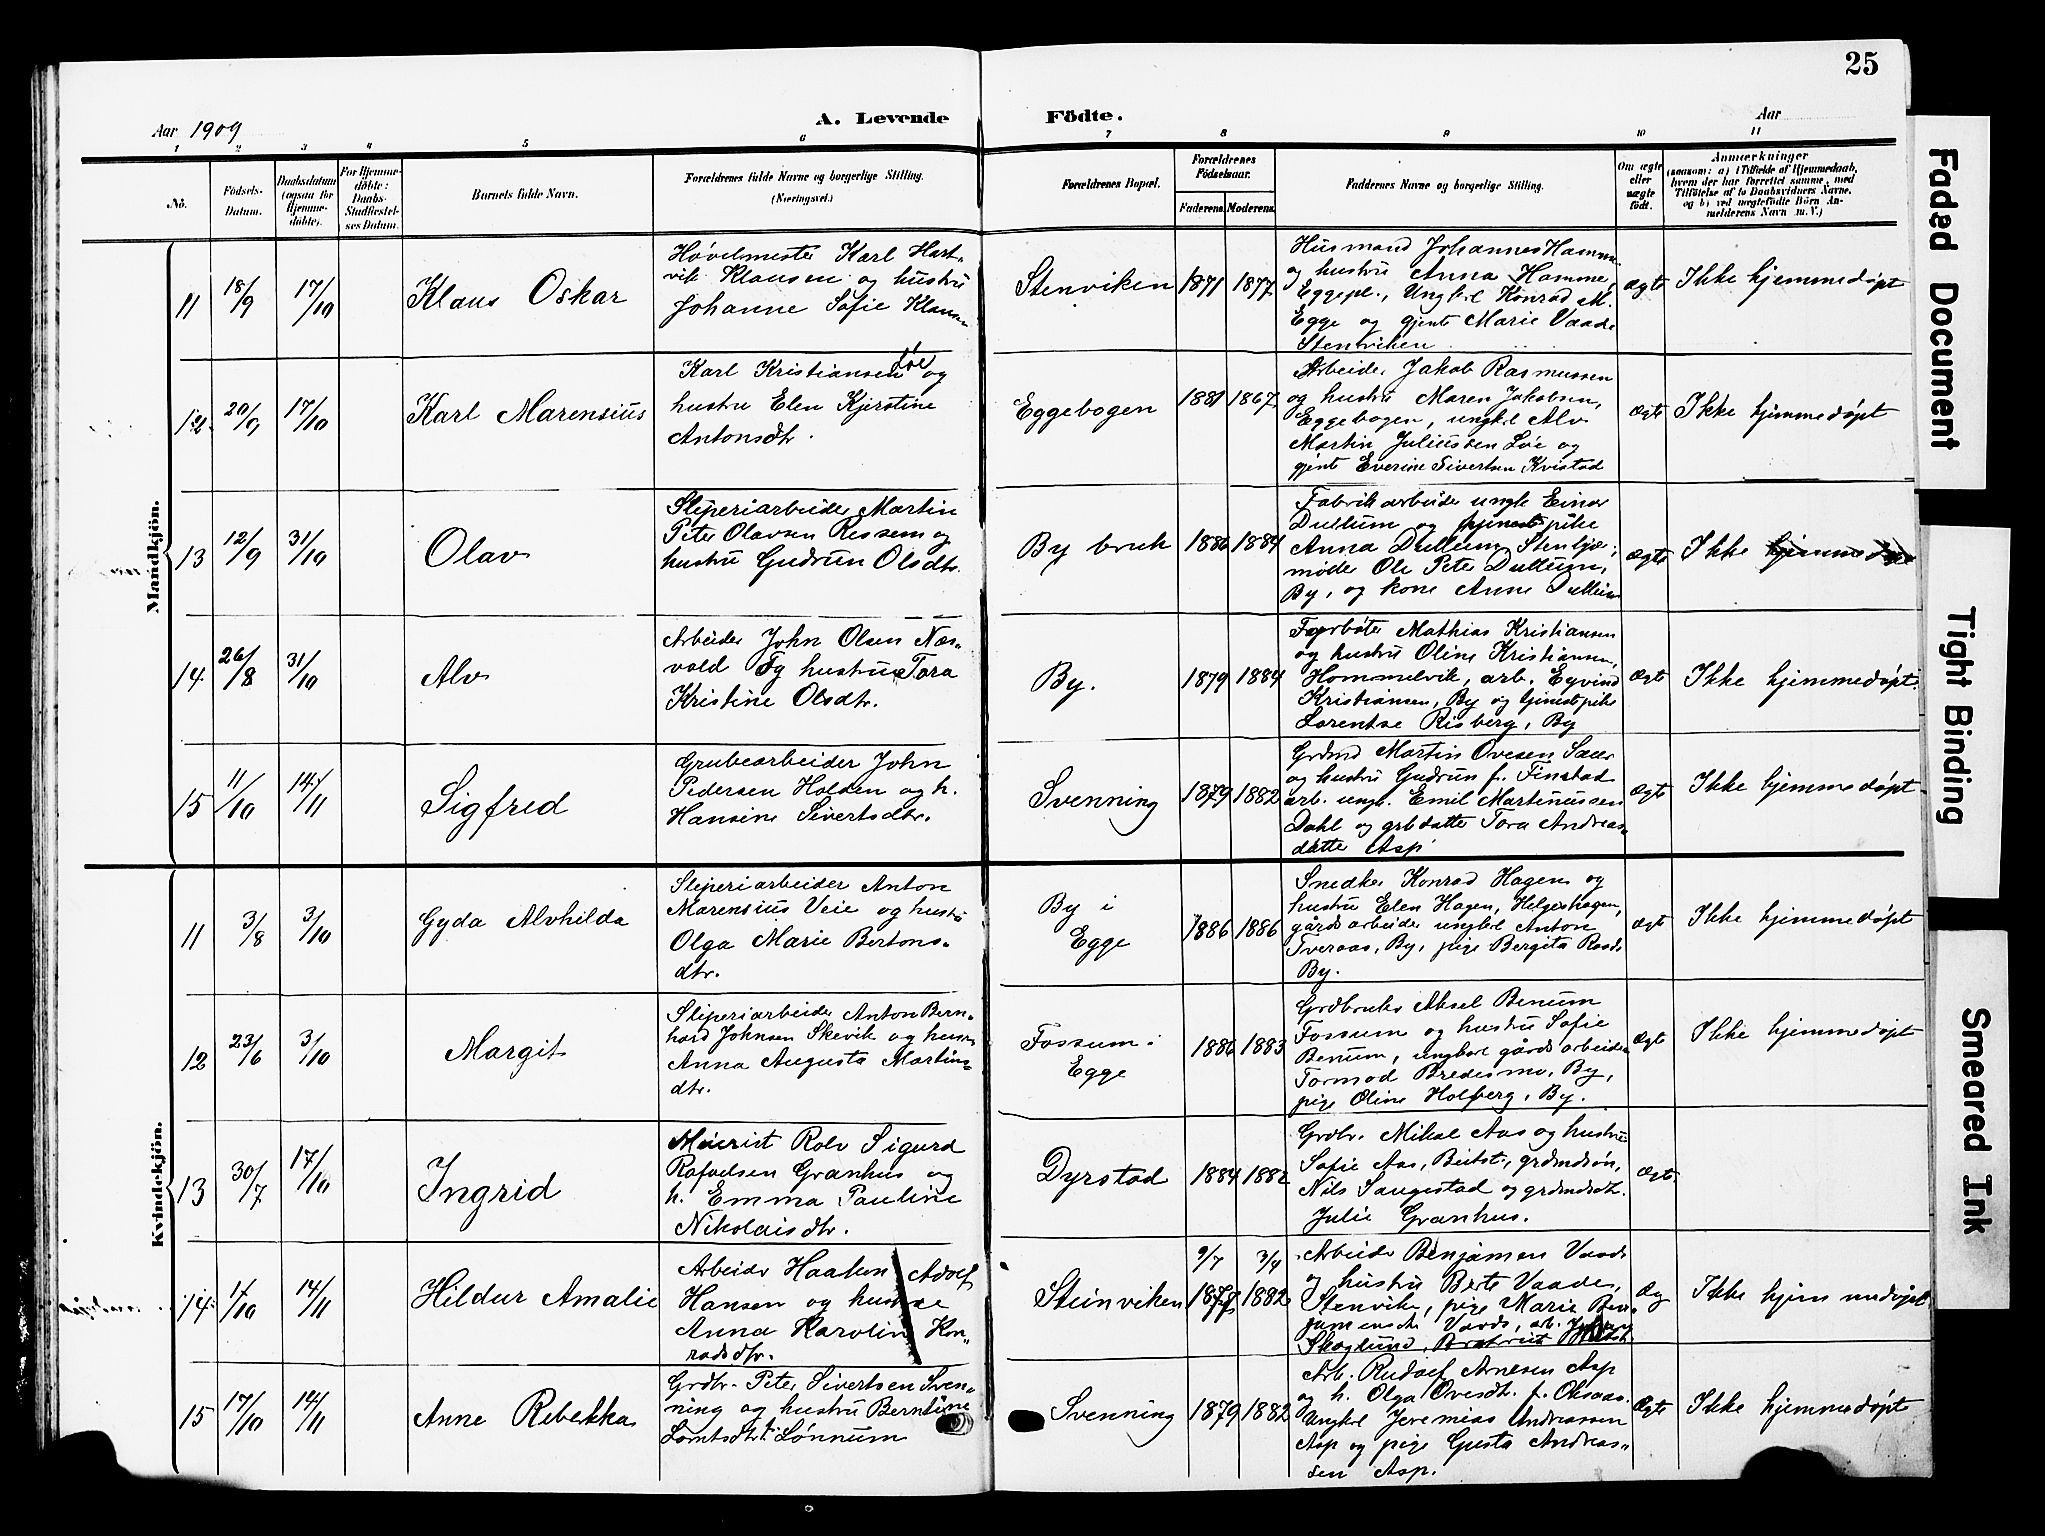 25
Aar 1909
A. Levende Födte.
Aar
1 2 3 4 5 6 7 8 9 10 11
Nô.
Födsels-Datum.
Daabsdatum (ogsaa for Hjemmedöbte).
For Hjemmedöbte: Daabs-Stadfæstelses Datum.
Barnets fulde Navn.
Forældrenes fulde Navne og borgerlige Stilling. (Næringsvei.)
Forældrenes Bopæl.
Forældrenes Födselsaar.
Faderens. Moderens.
Faddernes Navne og borgerlige Stilling.
Om ægte eller uægte födt.
Anmærkninger
(saasom: a) i Tilfælde af Hjemmedaab, hvem der har forrettet samme, med Tilföielse af to Daabsvidners Navne, og b) ved uægtefödte Börn Anmelderens Navn m. V.)
Mandkjön.
11 18/9 17/10 Klaus Oskar
Høvelmester Karl Hart-
vik Klausen og hustru
Johanne Sofie Klausen
Stenviken 1871 1877
Husmand Johannes Hamme
og hustru Anna Hamme,
Eggepl., Ungkrl Konrad M.
Egge og gjente Marie Vaade
Stenviken
ægte Ikke hjemmedøpt
12 20/9 17/10 Karl Marensius
Karl Kristiansen Løe og
hustru Elen Kjerstine
Antonsdtr.
Eggebogen 1881 1867
Arbeider Jakob Rasmussen
og hustru Maren Jakobsen,
Eggebogen, ungkrl Alv
Martin Juliussen Løe og
gjente Everine Sivertsen Kvistad
ægte Ikke hjemmedøpt
13 12/9 31/10 Olav
Sliperiarbeider Martin
Peter Olavsen Ressem og
hustru Gudrun Olsdtr.
By bruk 1886 1884
Fabrikarbeider ungk Einar
Dullum og tjenestpike
Anna Dullum, Stenkjær,
møller Ole Peter Dullum,
By, og kone Anne Dullum
ægte Ikke hjemmedøpt
14 26/8 31/10 Alv
Arbeider John Olsen Næs-
vold og hustru Tora
Kristine Olsdtr.
By. 1879 1884
Fyrbøter Mathias Kristiansen
og hustru Oline Kristiansen,
Hommelvik, arb. Eyvind
Kristiansen, By og tjenestpike
Lorentse Risberg, By
ægte Ikke hjemmedøpt.
15 11/10 14/11 Sigfred
Grubearbeider John
Pedersen Holden og h.
Hansine Sivertsdtr.
Svenning 1879 1882
Grdmd Martin Ovesen Saur
og hustru Gudrun f. Finstad
arb. ungk. Emil Martinussen
Dahl og grbdatter Tora Andreas-
datter Asp
ægte Ikke hjemmedøpt
Kvindekjön.
11 3/8 3/10 Gyda Alvhilda
Sliperiarbeider Anton
Marensius Veie og hustru
Olga Marie Bertons-
dtr.
By i
Egge
1886 1886
Snedker Konrad Hagen og
hustru Elen Hagen, Helgeshagen,
gårdsarbeider ungkrl Anton
Tveraas, By, pige Bergita Raade
By.
ægte Ikke hjemmedøpt
12 23/6 3/10 Margit
Sliperiarbeider Anton Bern-
hard Johnsen Skevik og hustru
Anna Augusta Martins-
dtr.
Fossum i
Egge
1886 1883
Grdbruker Aksel Benum
Fossum og hustru Sofie
Benum, ungkarl gårdsarbeider
Tormod Bredesmo, By,
pige Oline Holberg, By.
ægte Ikke hjemmedøpt
13 30/7 17/10 Ingrid
Meierist Rolv Sigurd
Rafaelsen Granhus og
h. Emma Pauline
Nikolaisdtr.
Dyrstad 1884 1882
Grdbr. Mikal Aas og hustru
Sofie Aas, Beitst., grdmdsøn,
Nils Saugestad og grdmdsdtr.
Julie Granhus.
ægte.
14 1/10 14/11 Hildur Amalie
Arbeider Haakon Adolf
Hansen og hustrue
Anna Karoline Kon-
radsdtr.
Steinviken
9/7 1877 3/4 1882
Arbeider Benjamen Vaade
og hustru Berte Vaade,
Stenviken, pige Marie Ben-
jamensdt Vaade, arb.
Skoglund,
Æg Ikke hjemmedøpt
15 17/10 14/11 Anne Rebekka
Grdbr. Peter Sivertsen Sven-
ning og hustru Berntine
Lorntsdtr f. Lønnum
Svenning 1879 1882
Arb. Rudolf Arnesen Asp
og h. Olga Ovesdt. f. Oksaas.
Ungkrl Jeremias Andreassen
Asp og pige Gusta Andreas-
sen Asp.
Ægte Ikke hjemmedøpt
Faded Document
Tight Binding
Smeared Ink